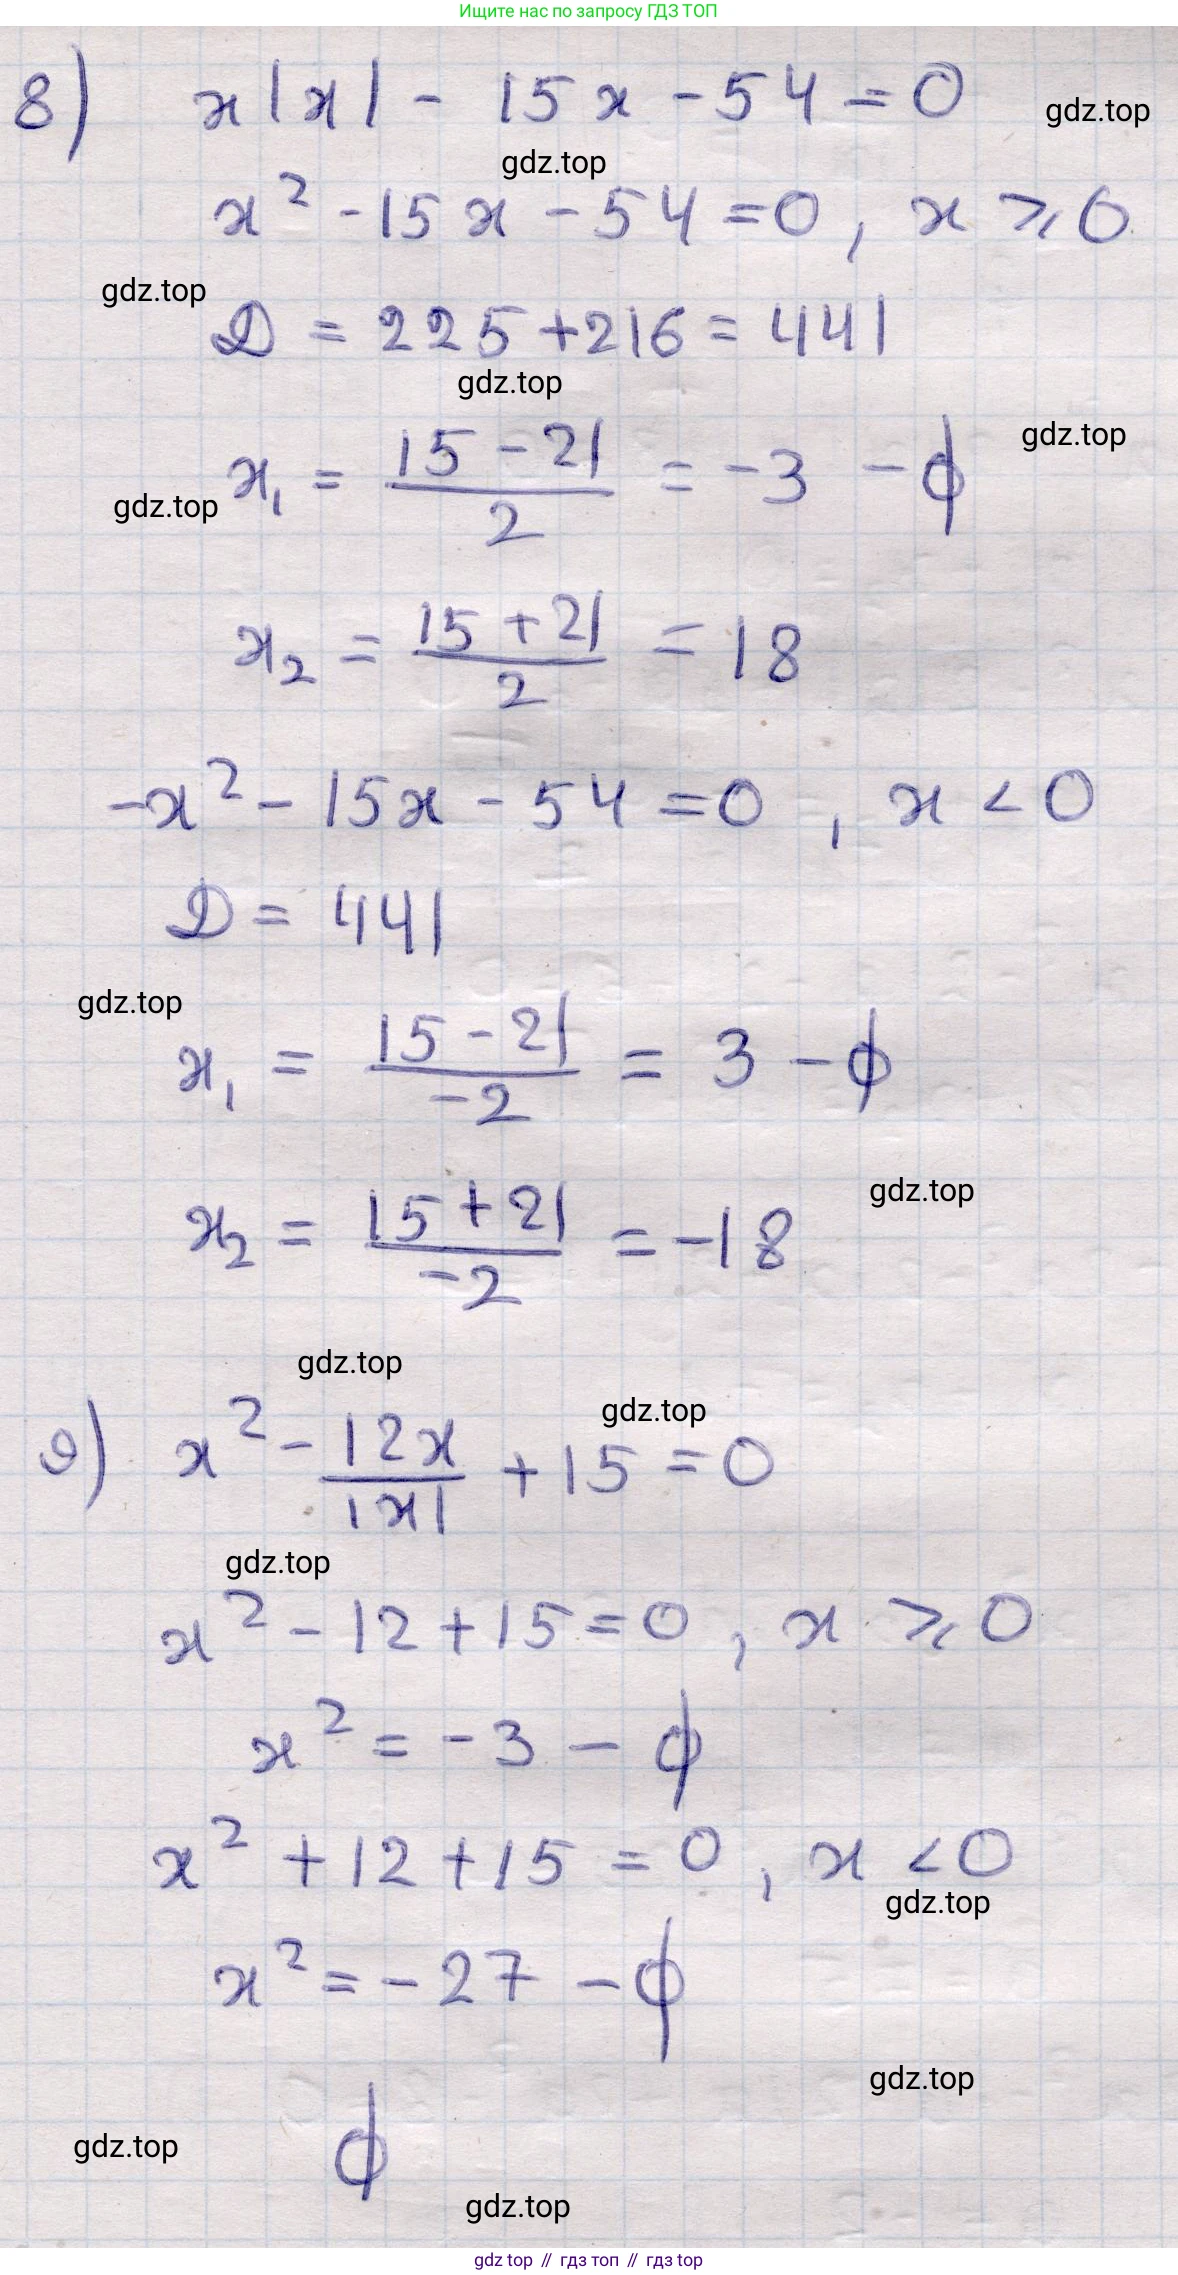 Ищите нас по запросу ГДЗ ТОП
8) x|x| - 15x - 54 = 0
gdz.top
gdz.top
x² - 15x - 54 = 0, x ⩾ 0
gdz.top
D = 225 + 216 = 441
gdz.top
gdz.top
x₁ = (15 - 21)/2 = -3 - ϕ
gdz.top
x₂ = (15 + 21)/2 = 18
-x² - 15x - 54 = 0, x < 0
D = 441
gdz.top
x₁ = (15 - 21)/-2 = 3 - ϕ
gdz.top
x₂ = (15 + 21)/-2 = -18
gdz.top
gdz.top
9) x² - 12x/|x| + 15 = 0
gdz.top
x² - 12 + 15 = 0, x ⩾ 0
x² = -3 - ϕ
x² + 12 + 15 = 0, x < 0
gdz.top
x² = -27 - ϕ
gdz.top
gdz.top
ϕ
gdz.top
gdz top // гдз топ // гдз top